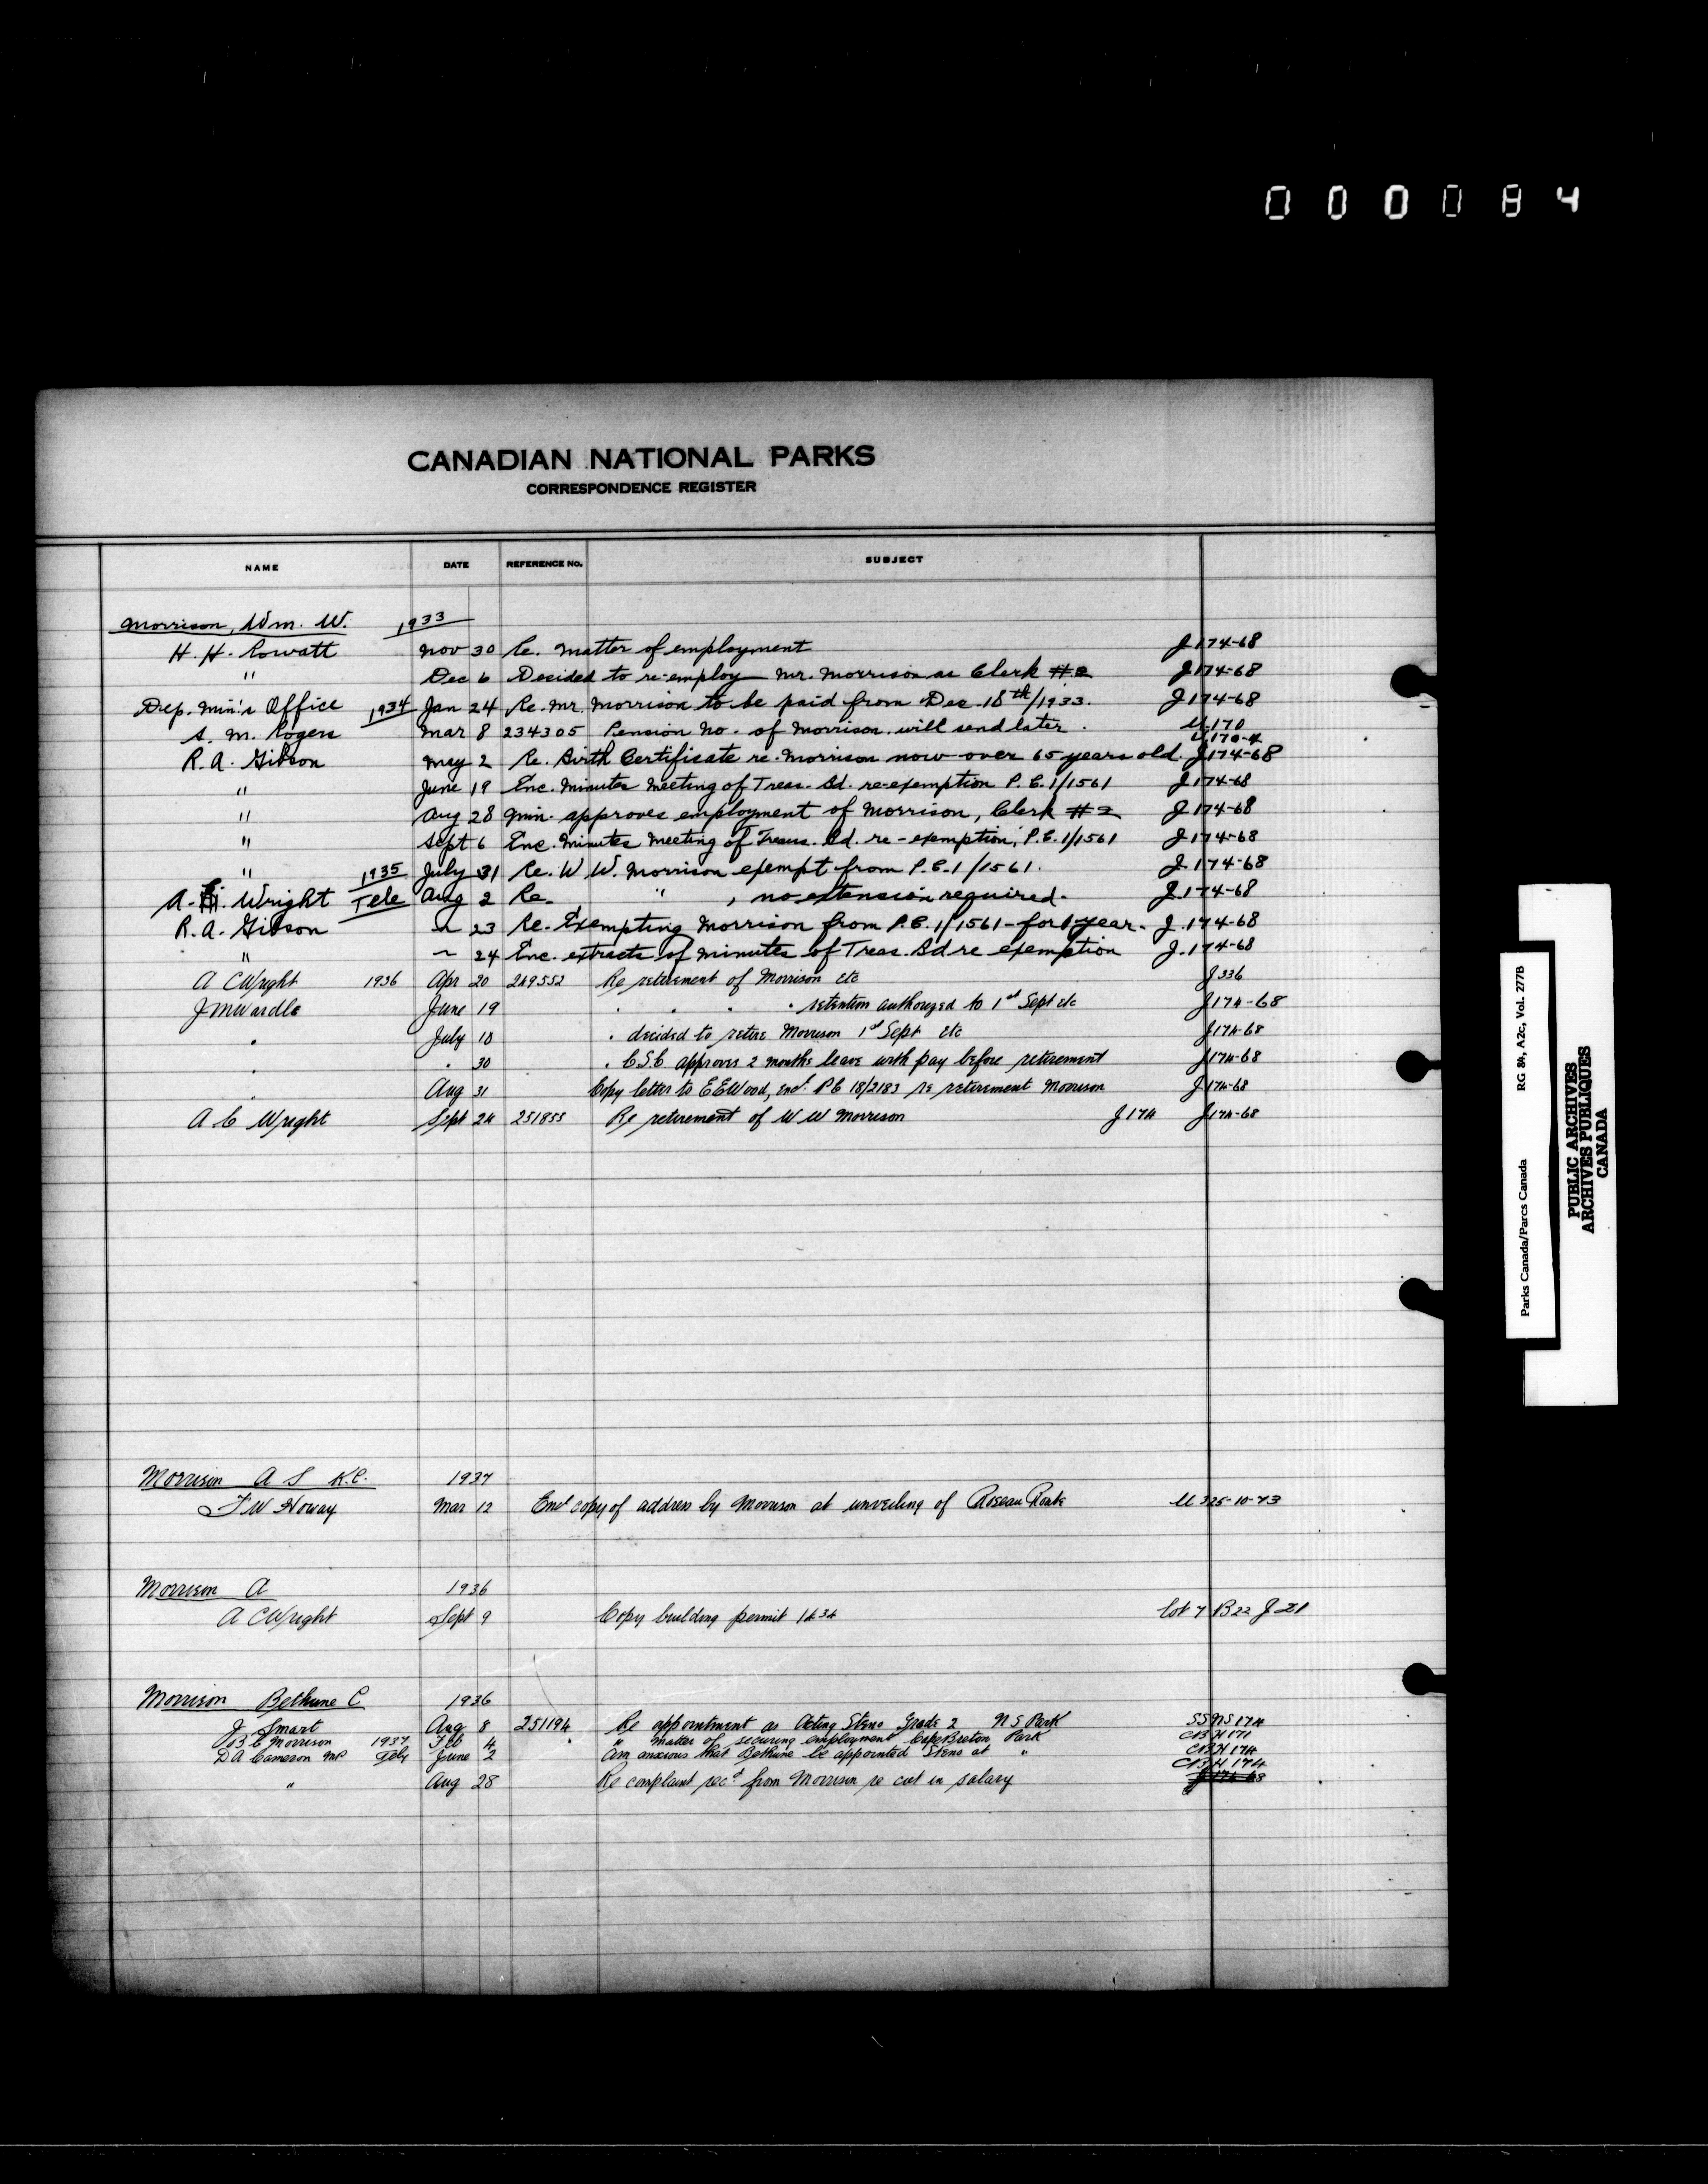 000084
CANADIAN NATIONAL PARKS
CORRESPONDENCE REGISTER
NAME DATE REFERENCE No. SUBJECT
Morrison, Wm. W. 1933
H. H. Rowatt Nov 30 Re. Matter of employment J 174-68
" Dec 6 Decided to re-employ Mr. Morrison as Clerk #2 J 174-68
Dep. Min's Office 1934 Jan 24 Re. Mr. Morrison to be paid from Dec. 18th/1933. J 174-68
S. M. Rogers Mar 8 234305 Pension No. of Morrison will send later. U 170
U 170-4
R. A. Gibson May 2 Re. Birth Certificate re. Morrison now over 65 years old. J 174-68
" June 19 Enc. Minutes Meeting of Treas. Bd. re-exemption P.C. 1/1561 J 174-68
" Aug 28 Min. approves employment of Morrison, Clerk #2 J 174-68
" Sept 6 Enc. Minutes Meeting of Treas. Bd. re-exemption, P.C. 1/1561 J 174-68
" 1935 July 31 Re. W W. Morrison exempt from P.C. 1/1561. J 174-68
A. Wright Tele Aug 2 Re. " , no extension required. J 174-68
R. A. Gibson " 23 Re. Exempting Morrison from P.C. 1/1561 - for 1 year. J. 174-68
" " 24 Enc. extracts of minutes of Treas. Bd re exemption J. 174-68
A C Wright 1936 Apr 20 249552 Re retirement of Morrison etc J 336
J M Wardle June 19 " " " " retention authorized to 1st Sept etc J 174-68
" July 18 " decided to retire Morrison 1st Sept etc J 174-68
" " 30 " C.S.C approves 2 months leave with pay before retirement J 174-68
" Aug 31 Copy letter to E E Wood, encl. P C 18/2183 re retirement Morrison J 174-68
A C Wright Sept 24 251855 Re retirement of W W Morrison J 174 J 174-68
Morrison A S K.C. 1937
F W Howay Mar 12 Encl copy of address by Morrison at unveiling of Roseau Route U 325-10-73
Morrison A 1936
A C Wright Sept 9 Copy building permit 1434 Lot 7 B 22 J 21
Morrison Bethune C 1936
J Smart Aug 8 251194 Re appointment as Acting Steno Grade 2 N S Park SSNS 174
B C Morrison 1937 Feb 4 " " Matter of securing employment Cape Breton Park CBH 171
D A Cameron MP June 2 Am anxious that Bethune be appointed Steno at " CBH 174
" Aug 28 Re complaint rec'd from Morrison re cut in salary CBH 174
J 174-68
Parks Canada/Parcs Canada RG 84, A2c, Vol. 277B
PUBLIC ARCHIVES
ARCHIVES PUBLIQUES
CANADA